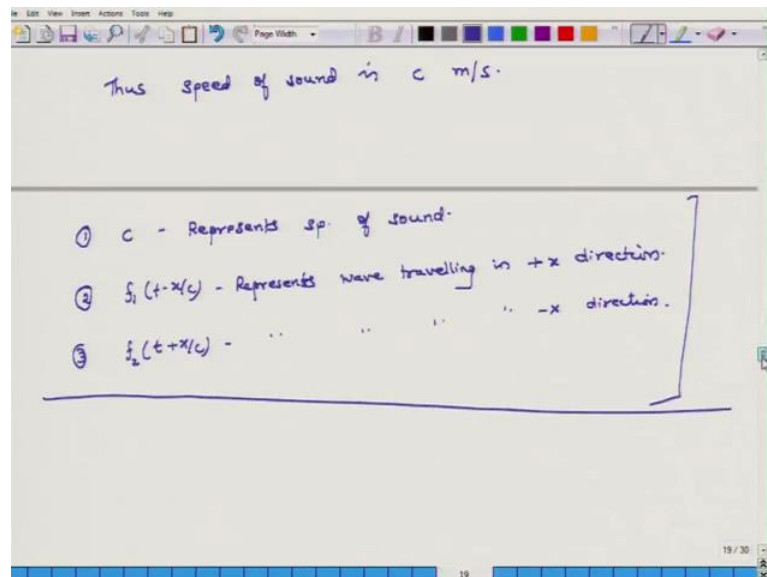 File Edit View Insert Actions Tools Help
Page Width
B I
Thus speed of sound is c m/s.
① c - Represents sp. of sound.
② f₁ (t-x/c) - Represents wave travelling in +x direction.
③ f₂ (t+x/c) - " " " " -x direction.
19 / 30
19